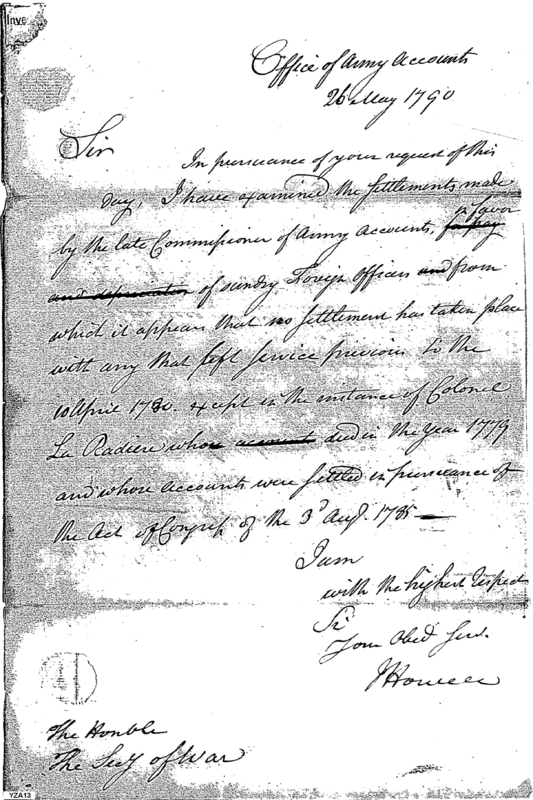 Inve
Office of Army Accounts
26 May 1790
Sir
In pursuance of your request of this
day, I have examined the settlements made
by the late Commissioner of Army Accounts, for pay in favor
and depreciation of sundry Foreign Officers and from
which it appears that no settlement has taken place
with any that left service previous to the
10 April 1780. except in the instance of Colonel
La Radiere whose accounts died in the Year 1779
and whose accounts were settled in pursuance of
the Act of Congress of the 3d Augt. 1785 —
I am
with the highest respect
Sir
Your Obed Serv.
J Howell
The Honble
The Secy of War
YZA13